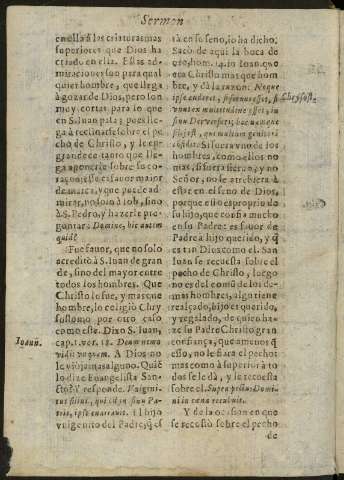 Sermon
en ella à las criaturas mas
superiores que Dios ha
criado en ella. Estas ad-
miraciones son para qual
quier hombre, que llega
à gozar de Dios, pero son
muy cortas para lo que
en S. Iuan passa; pues lle-
ga à reclinarse sobre el pe-
cho de Christo, y le en-
grandece tanto que lle-
ga a ponerle sobre su co-
raçon: esse es fauor maior
de marca, y que puede ad-
mirar, no solo à Iob, sino
à S. Pedro, y hazerle pre-
guntar: Domine, hic autem
quid?
Fue fauor, que no solo
acreditò à S. Iuan de gran
de, sino del mayor entre
todos los hombres. Que
Christo lo fue, y mas que
hombre, lo colegiò Chry
sostomo por otro caso
como este. Dixo S. Iuan,
Ioann.
cap. 1. ver. 18. Deum nemo
vidit vnquam. A Dios no
le viò jamas alguno. Què es
lo dize Euangelista San-
cto? Y responde. Vnigeni-
tus filius, qui est in sinu Pa-
tris, ipse enarrauit. El hijo
vnigenito del Padre, q̃ es
tà en su seno, lo ha dicho.
Sacò de aqui la boca de
oro, hom. 14. in Ioan. que
era Christo mas que hom
bre, y dà la razon: Neque
ipse auderet, si seruus esset, si
Chrysost.
vnus ex multitudine esset, in
sinu
Si fuera vno de los
hombres, como ellos no
mas, si fuera sieruo, y no
Señor, no se atreuiera à
estar en el seno de Dios,
porque esso es proprio de
su hijo, que confia mucho
en su Padre: es fauor de
Padre a hijo querido, y q̃
es tan Dios como el. San
Iuan se recuesta sobre el
pecho de Christo, luego
no es del comũ de los de-
mas hombres, algo tiene
realçado, hijo es querido,
y regalado, de quien ha-
ze su Padre Christo gran
confiança, que a menos q̃
esso, no le fiara el pecho:
mas como à superior à to
dos se le dà, y le recuesta
sobre el. Supra pectus Domi-
ni in cœna recubuit.
Y de la ocasion en que
se recostò sobre el pecho
de